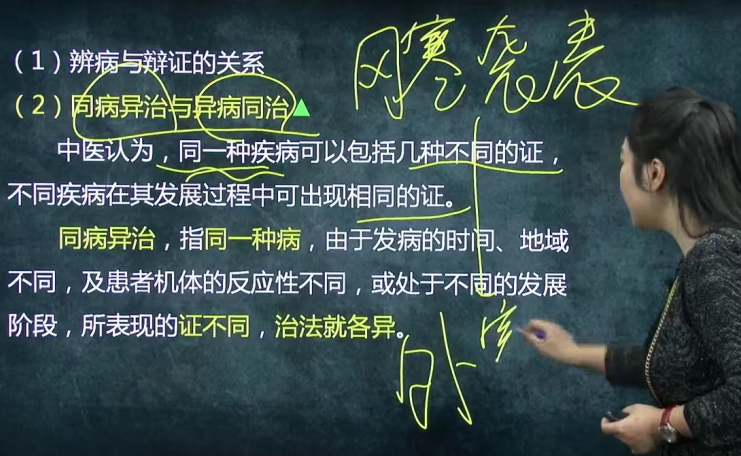 （1）辨病与辩证的关系
（2）同病异治与异病同治▲
中医认为，同一种疾病可以包括几种不同的证，
不同疾病在其发展过程中可出现相同的证。
同病异治，指同一种病，由于发病的时间、地域
不同，及患者机体的反应性不同，或处于不同的发展
阶段，所表现的证不同，治法就各异。
风寒袭表